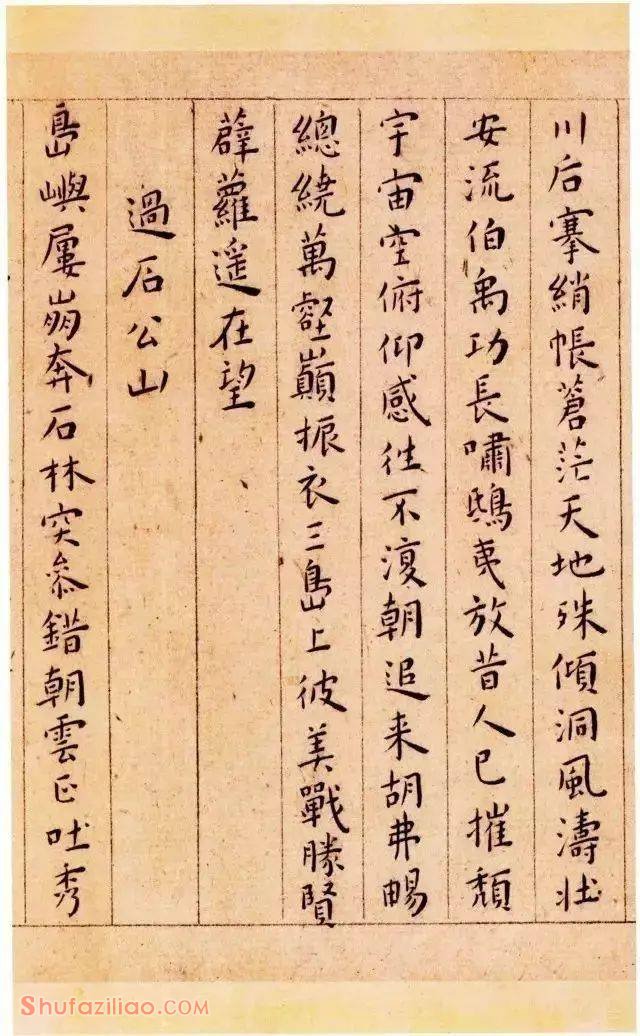 川后搴綃帳蒼茫天地殊傾洞風濤壯
安流伯禹功長嘯鴟夷放昔人已摧頹
宇宙空俯仰感往不復朝追来胡弗暢
總繞萬壑巔振衣三島上彼美戰勝賢
薜蘿遥在望
過石公山
島嶼屢崩奔石林突叅錯朝雲正吐秀
Shufaziliao.COM